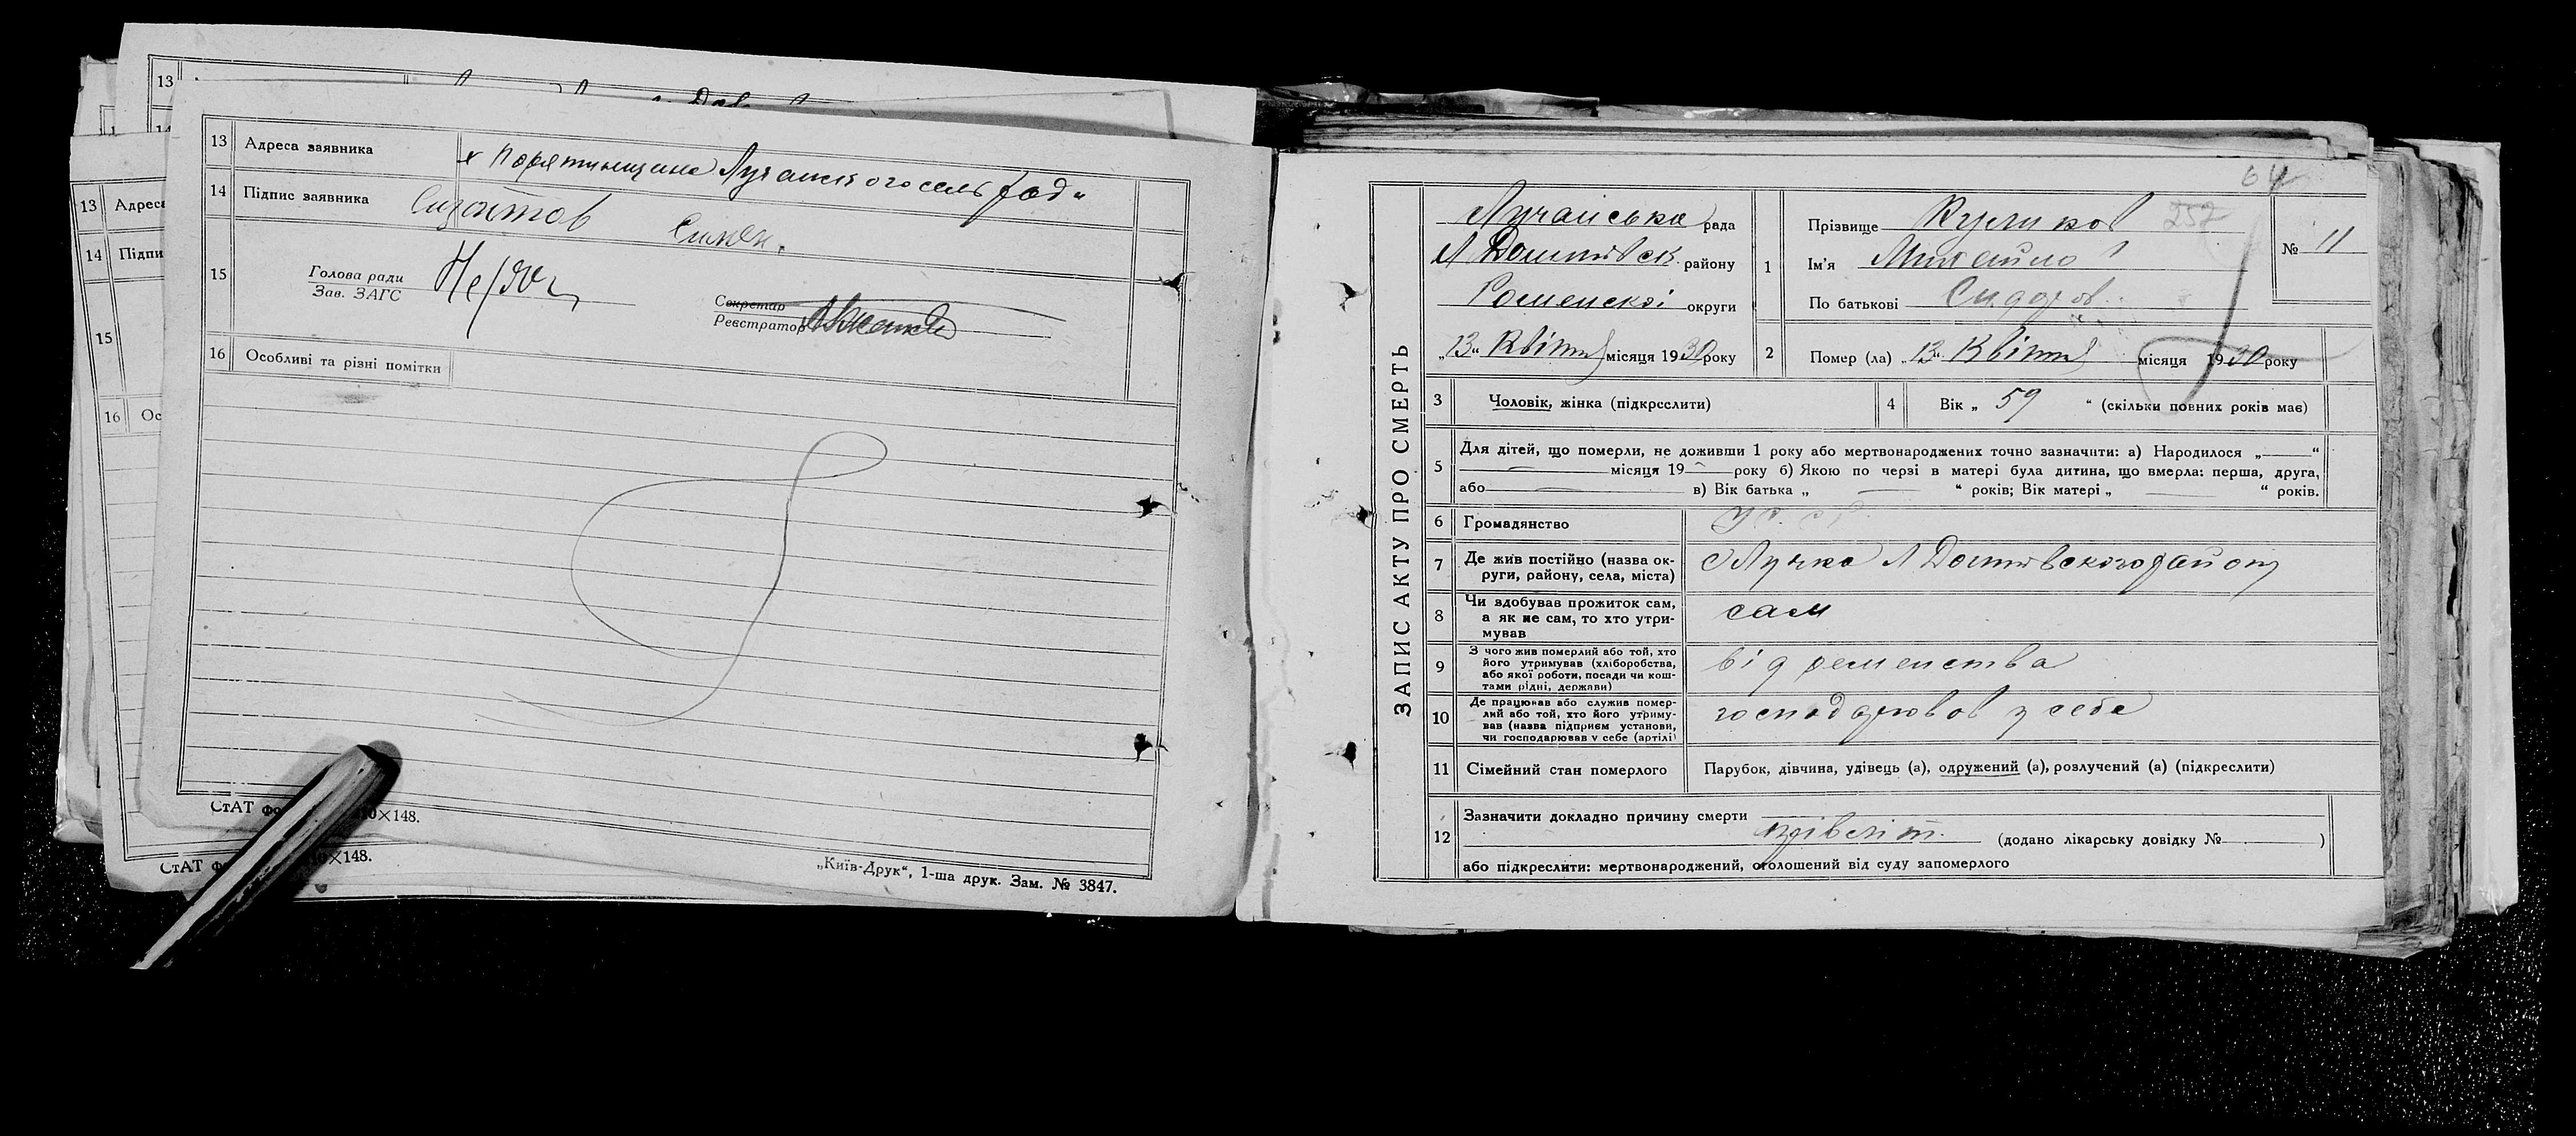 13 Адреса заявника х Лучанського сельрад.
14 Підпис заявника
15 Голова ради
Зав. ЗАГС
Секретар
Реєстратор
16 Особливі та різні помітки
13 Адрес
14 Підпи
15
16 Ос
13
СтАТ ×148.
СтАТ ×148.
„Київ-Друк“, 1-ша друк. Зам. № 3847.
64
252
ЗАПИС АКТУ ПРО СМЕРТЬ
Лучанська рада
району
Роменскої округи
„13“ Квітня місяця 1930 року
1 Прізвище Куликов
Ім'я Михайло
По батькові Сидоров.
№ 11
2 Помер (ла) „13“ Квітня місяця 1930 року
3 Чоловік, жінка (підкреслити)
4 Вік „ 59 “ (скільки повних років має)
5 Для дітей, що померли, не доживши 1 року або мертвонароджених точно зазначити: а) Народилося „—“
місяця 19— року б) Якою по черзі в матері була дитина, що вмерла: перша, друга,
або — в) Вік батька „ — “ років; Вік матері „ — “ років.
6 Громадянство
7 Де жив постійно (назва округи, району, села, міста) Лучка району
8 Чи здобував прожиток сам,
а як не сам, то хто утри-
мував
сам
9 З чого жив померлий або той, хто
його утримував (хліборобства,
або якої роботи, посади чи кош-
тами рідні, держави)
від ремества
10 Де працював або служив помер-
лий або той, хто його утриму-
вав (назва підприєм установи,
чи господарював у себе (артілі)
господарював у себе
11 Сімейний стан померлого Парубок, дівчина, удівець (а), одружений (а), розлучений (а) (підкреслити)
12 Зазначити докладно причину смерти
(додано лікарську довідку № )
або підкреслити: мертвонароджений, оголошений від суду запомерлого